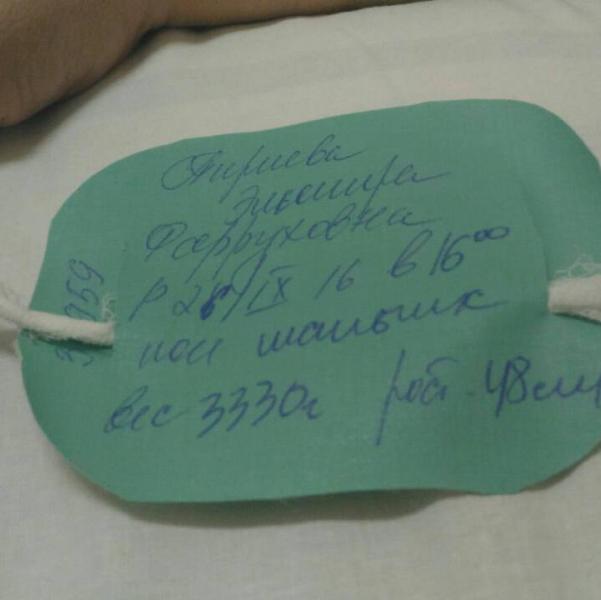 Эльмира
Фарруховна
Р 26/IX 16 в 16 00
пол мальчик
вес 3330г рост 48см